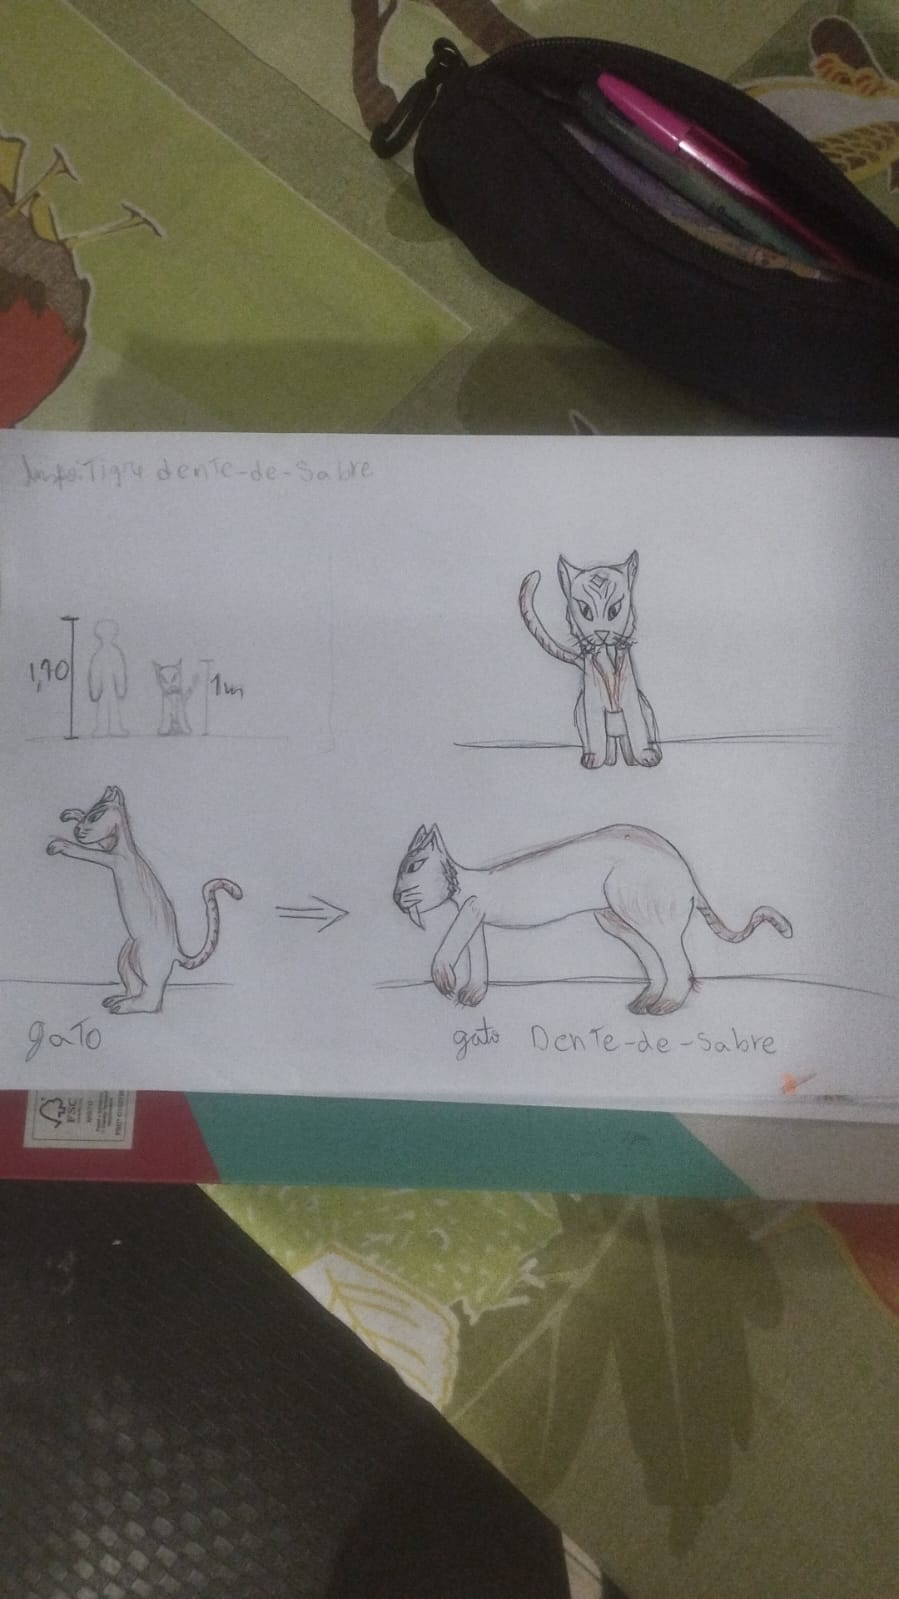 Tigre dente-de-Sabre
1,70
1m
gato
gato Dente-de-Sabre
FSC